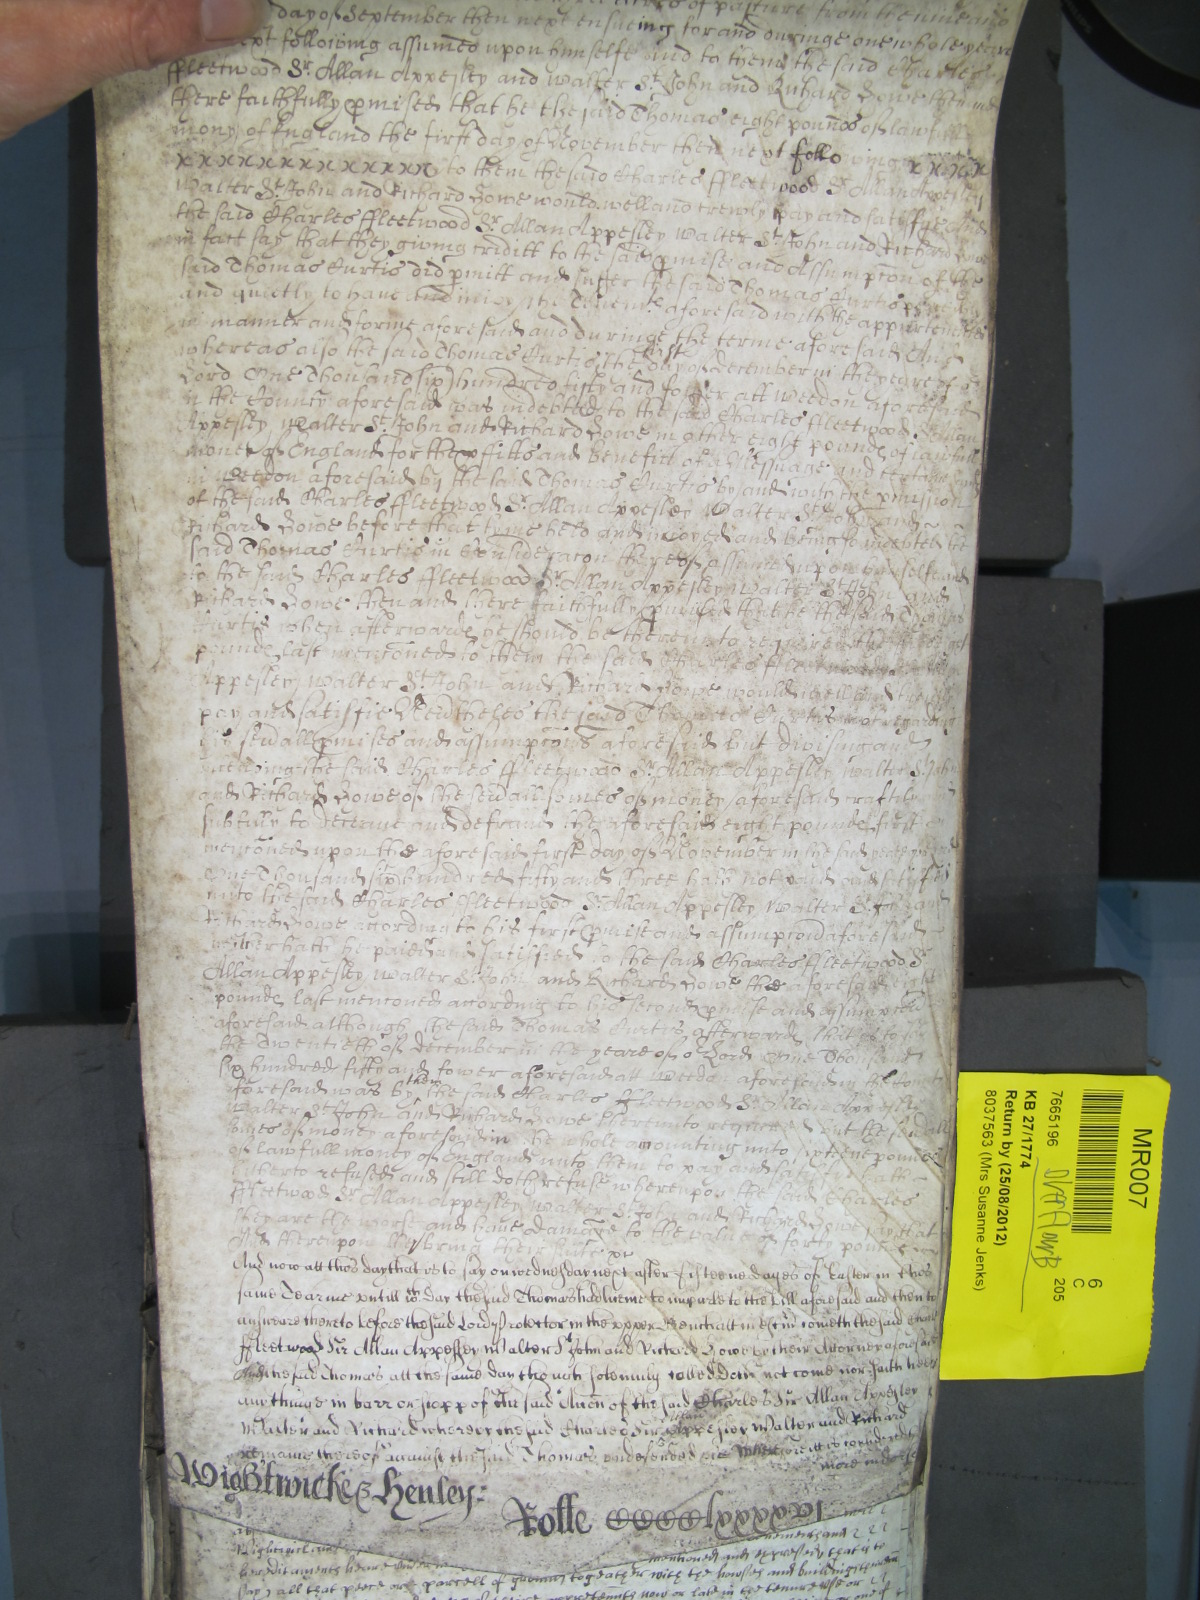 of pasture from thence and
day of September then next ensueing for and duringe one whole yeare
next following assumed upon himselfe and to them the said Charles
ffleetwood Sr Allan Appesley and Walter St John and Richard Bowe then and
there faithfully pmised that he the said Thomas eight pounds of lawfull
mony of England the first day of November then next following x x x x
x x x x x x x x x x x x x to them the said Charles ffleetwood Sr Allan Appesley
Walter St John and Richard Bowe would well and truely pay and satisfie And
the said Charles ffleetwood Sr Allan Appesley Walter St John and Richard Bowe
in fact say that they giving creditt to the said pmise and Assumpcon of the
said Thomas Curtis did pmitt and suffer the said Thomas Curtis
and quietly to have and injoy the Tenemte aforesaid with the appurtences
in manner and forme aforesaid and duringe the terme aforesaid And
whereas also the said Thomas Curtis the day of December in the yeare of
Lord One Thousand six hundred fifty and fower att Weedon aforesaid
in the County aforesaid was indebted to the said Charles ffleetwood Sr Allan
Appesley Walter St John and Richard Bowe in other eight pounds of lawfull
money of England for the pffitts and benefitt of a Messuage and certaine
in Weedon aforesaid by the said Thomas Curtis by and with the pmission
of the said Charles ffleetwood Sr Allan Appesley Walter St John and
Richard Bowe before that tyme held and injoyed and being so indebted the
said Thomas Curtis in Consideracon thereof assumed upon himselfe and
to the said Charles ffleetwood Sr Allan Appesley Walter St John and
Richard Bowe then and there faithfully pmised that he the said Thomas
Curtis when afterwards he should be thereunto required the eight
pounds last menconed to them the said Charles ffleetwood
Appesley Walter St John and Richard Bowe would well and truely
pay and satisfie Nevtheles the said Thomas Curtis not regarding
his sevall pmises and assumpcons aforesaid but divising and
the said Charles ffleetwood Sr Allan Appesley Walter St John
and Richard Bowe of the sevall somes of money aforesaid craftily and
subtilly to deceive and defraud the aforesaid eight pounds first
menconed upon the aforesaid first day of November in the said yeare
One Thousand six hundred fifty and three hath not paid and satisfied
unto the said Charles ffleetwood Sr Allan Appesley Walter St John and
Richard Bowe according to his first pmise and assumpcon aforesaid
neither hath he paid and satisfied to the said Charles ffleetwood Sr
Allan Appesley Walter St John and Richard Bowe the aforesaid eight
pounds last menconed according to his second pmise and assumpcon
aforesaid although the said Thomas Curtis afterwards that is to say
the Twentieth of December in the yeare of or Lord One Thousand
six hundred fifty and fower aforesaid at Weedon aforesaid in the County
foresaid was by them the said Charles ffleetwood Sr Allan Appesley
Walter St John and Richard Bowe thereunto required But the sevall
somes of money aforesaid in the whole amounting unto sixteene pounds
of lawfull money of England unto them to pay and satisfie hath
hitherto refused and still doth refuse whereupon the said Charles
ffleetwood Sr Allan Appesley Walter St John and Richard Bowe say that
they are the worse and have damage to the value of forty pounds
And thereupon they bring their suite &c
And now att this day that is to say on wednesday next after fifteene dayes of Easter in this
same Tearme untill wch day the said Thomas had licence to imparle to the Bill aforesaid and then to
answere thereto before the said Lord Protector in the upper Bench att Westmr cometh the said Charles
ffleetwood Sir Allan Appesley Walter St John and Richard Bowe by their Attorney aforesaid
And the said Thomas att the same day though solemnly called doth not come nor saith
any thinge in barr or stopp of the said Accon of the said Charles Sir Allan Appesley
Walter and Richard whereby the said Charles Sir Allan Appesley Walter and Richard
remaine thereof against the said Thomas undefended &c Wherefore itt is considered
Wightwicke & Henley:
Rolle
hereditaments
mentioned and expressed that is to
say all that peece or parcell of ground togeather with the howses and buildings
now or late in the tenure
MR007
6
C
205
7665196
KB 27/1774
Return by (25/08/2012)
8037563 (Mrs Susanne Jenks)